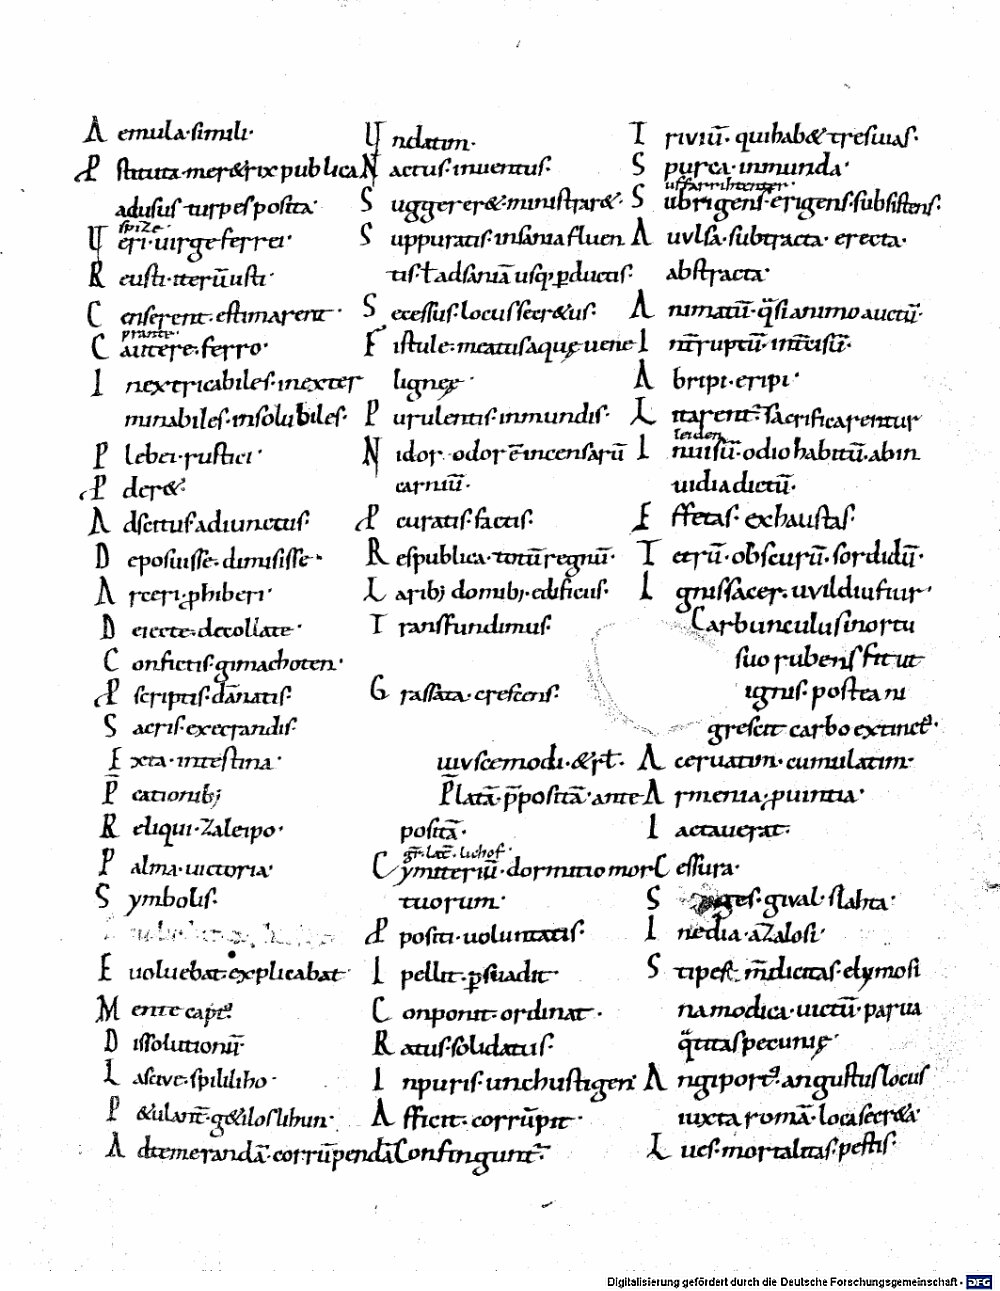 Aemula· simili·
Pstituta· mer&rix publica
adusus· turpes posita·
spize·
Veri· uirge ferrei·
Reusti· iterū usti·
Censerent· estimarent·
Cautere· ferro·
Inextricabiles· inexter
minabiles· insolubiles·
Plebei· rustici·
Pder&·
Adscitus· adiunctus·
Deposuisse· dimisisse·
Arceri· phiberi·
Deiecte· decollate·
Confictis· gimachoten·
Pscriptis· dānatis·
Sacris· execrandis·
Exta· intestina·
Reliqui· zaleipo·
Palma· uictoria·
Symbolis·
Euoluebat· explicabat·
Mente capt
Dissolutionū
Lasciue· spililiho·
P&ulant̄· g&iloslihun·
Adtemerandā· corrūpendā
Undatim·
Nactus· inuentus·
Suggerer&· ministrar&·
Suppuratis· insania fluen
tis· ł adsaniā usq; pductis·
Secessus· locus secr&us·
Fistule· meatus aquę uene
lignęę·
Purulentis· inmundis·
Nidor· odor ē incensarū
carniū·
Pcuratis· factis·
Respublica· totū regnū·
Larib; domib;· edificiis·
Transfundimus·
Grassata· crescens·
uiusce modi· &rł·
Platā· p̄positā· ante
positā·
gr̄· lat̄· lichof·
Cymiteriū· dormitio mor
tuorum·
Ppositi· uoluntatis·
Ipellit· psuadit·
Conponit· ordinat·
Ratus· solidatus·
Inpuris· unchustigen
Afficit· corrūpit·
Confingunt̄·
Triuiū· qui hab& tres uias·
Spurca· inmunda·
uffarrihtenter·
Subrigens· erigens· subsistens·
Auulsa· subtracta· erecta·
abstracta·
Animatū· q̄si animo auctū·
Int̄ruptū· int̄cisū·
Abripi· eripi·
Litarent̄· sacrificarentur
leiden
Inuisū· odio habitū· ab in
uidia dictū·
Effetas· exhaustas·
Tetrū· obscurū· sordidū·
Ignis sacer· uuildiufiur·
Carbunculus in ortu
suo rubens fit ut
ignis· postea ni
grescit carbo extinct
Aceruatim· cumulatim·
Armenia· puintia·
Iactauerat·
Cessura·
gival· slahta·
Inedia· azalosi·
Stipes· m̄dicitas· elymosi
na modica· uictū· parua
q̄titas pecunię·
Angiport· angustus locus
iuxta romā· loca secr&a·
Lues· mortalitas· pestis·
Digitalisierung gefördert durch die Deutsche Forschungsgemeinschaft · DFG